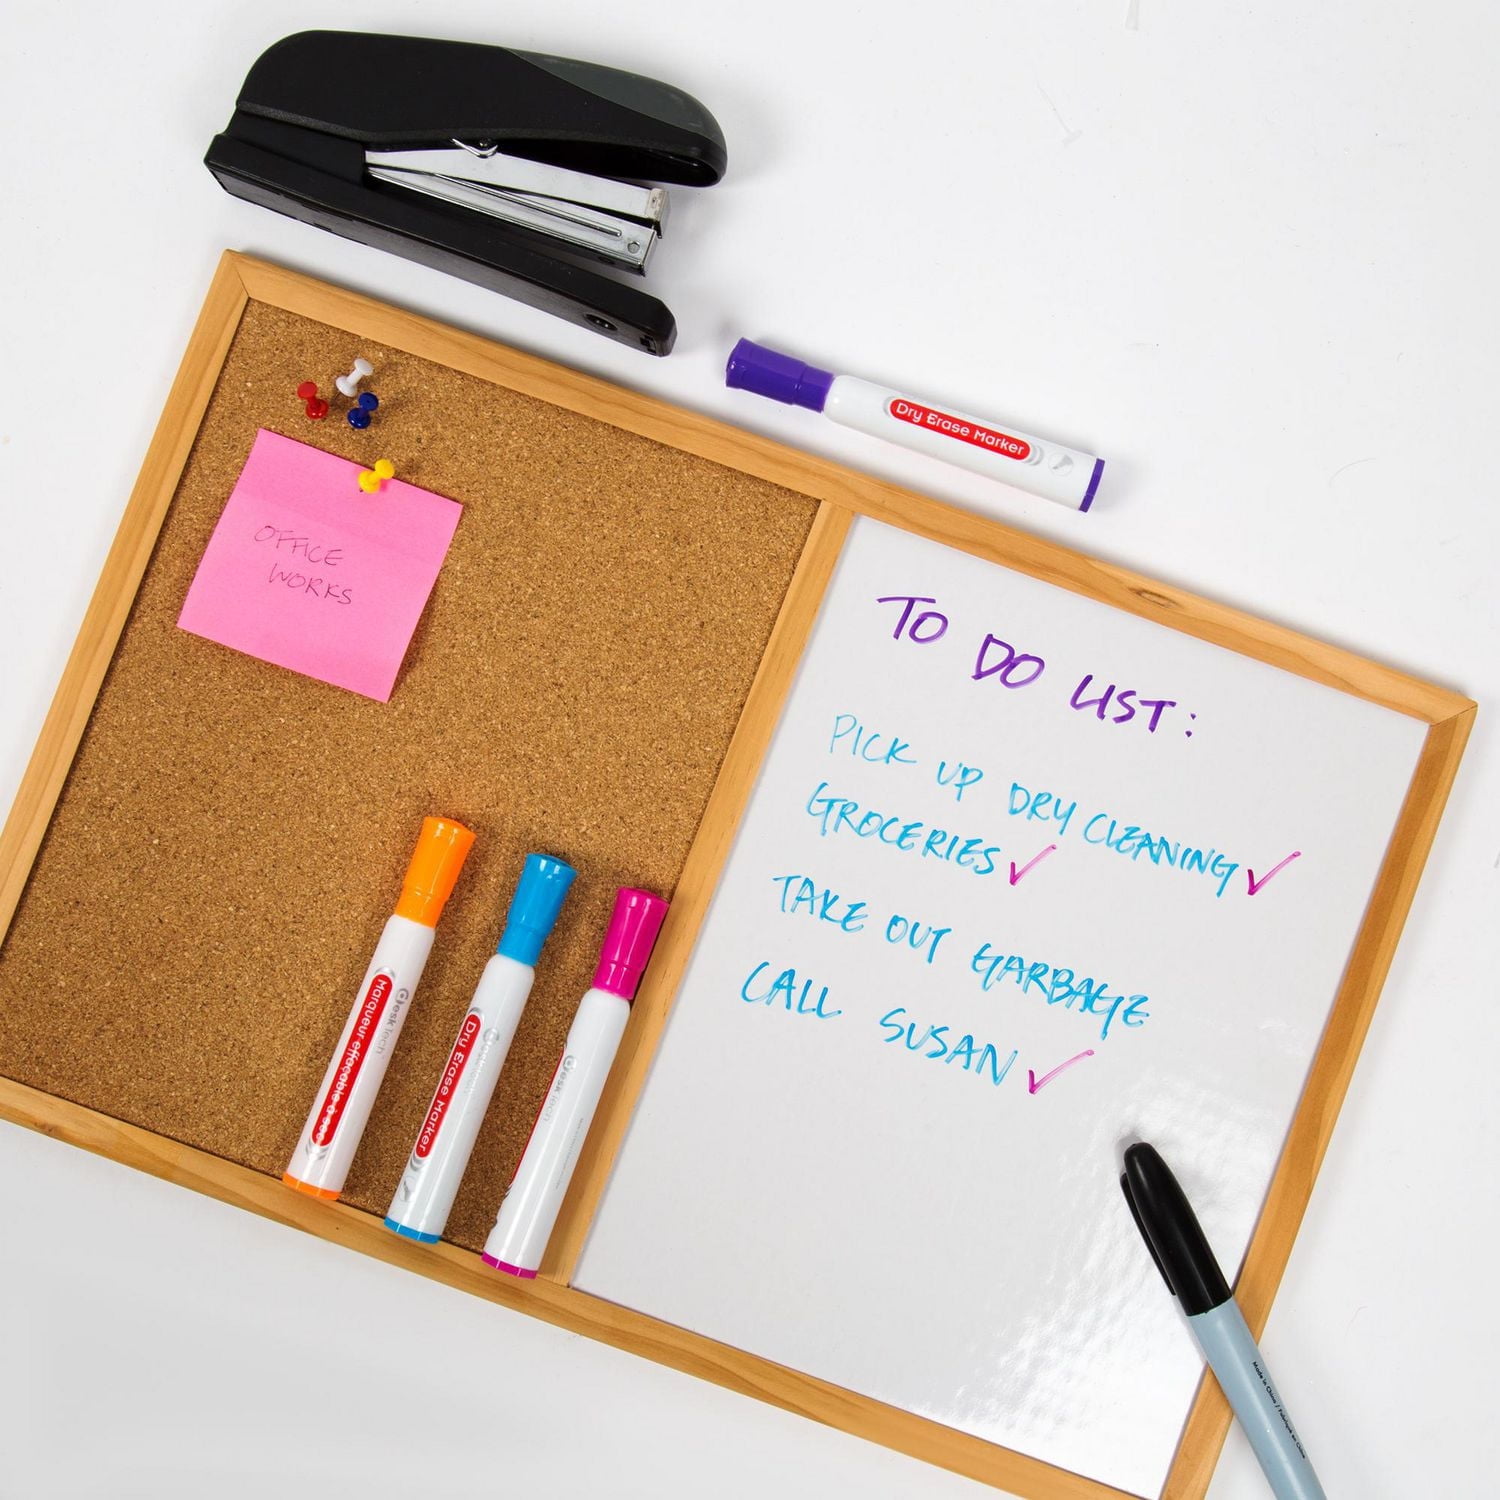 Dry Erase Marker
OFFICE
WORKS
TO DO LIST:
PICK UP DRY CLEANING ✓
GROCERIES ✓
TAKE OUT GARBAGE
CALL SUSAN ✓
Desktech
Marqueur effaçable à sec
Desktech
Dry Erase Marker
Desktech
Made in China / Fabriqué en Chine